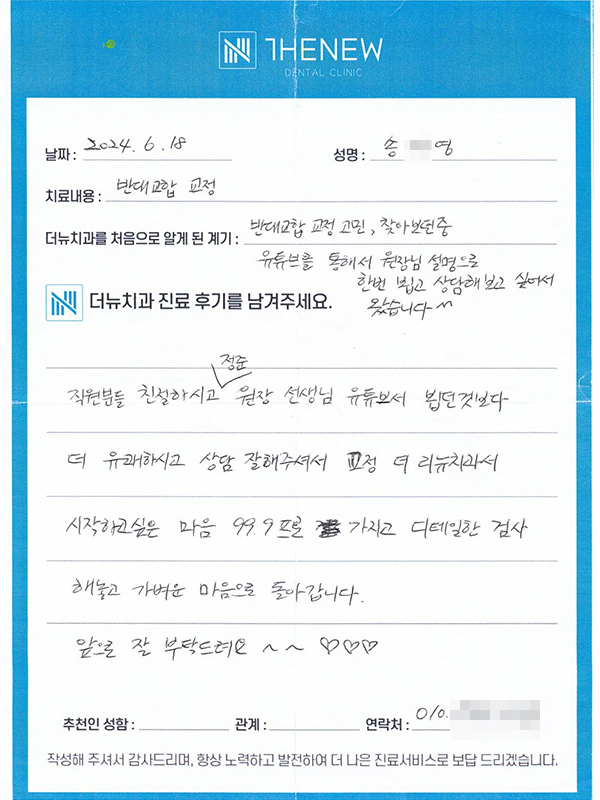 THENEW
DENTAL CLINIC
날짜 : 2024. 6. 18 성명 : 송 영
치료내용 : 반대교합 교정
더뉴치과를 처음으로 알게 된 계기 : 반대교합 교정 고민, 찾아보던중
유튜브를 통해서 원장님 설명으로
한번 뵙고 상담해보고 싶어서
왔습니다^^
더뉴치과 진료 후기를 남겨주세요.
정준
직원분들 친절하시고 원장 선생님 유튜브서 뵙던것보다
더 유쾌하시고 상담 잘해주셔서 교정 더 리뉴치과서
시작하고싶은 마음 99.9프로 가지고 디테일한 검사
해놓고 가벼운 마음으로 돌아갑니다.
앞으로 잘 부탁드려요 ~ ~ ♡♡♡
추천인 성함 : 관계 : 연락처 : 010.
작성해 주셔서 감사드리며, 항상 노력하고 발전하여 더 나은 진료서비스로 보답 드리겠습니다.